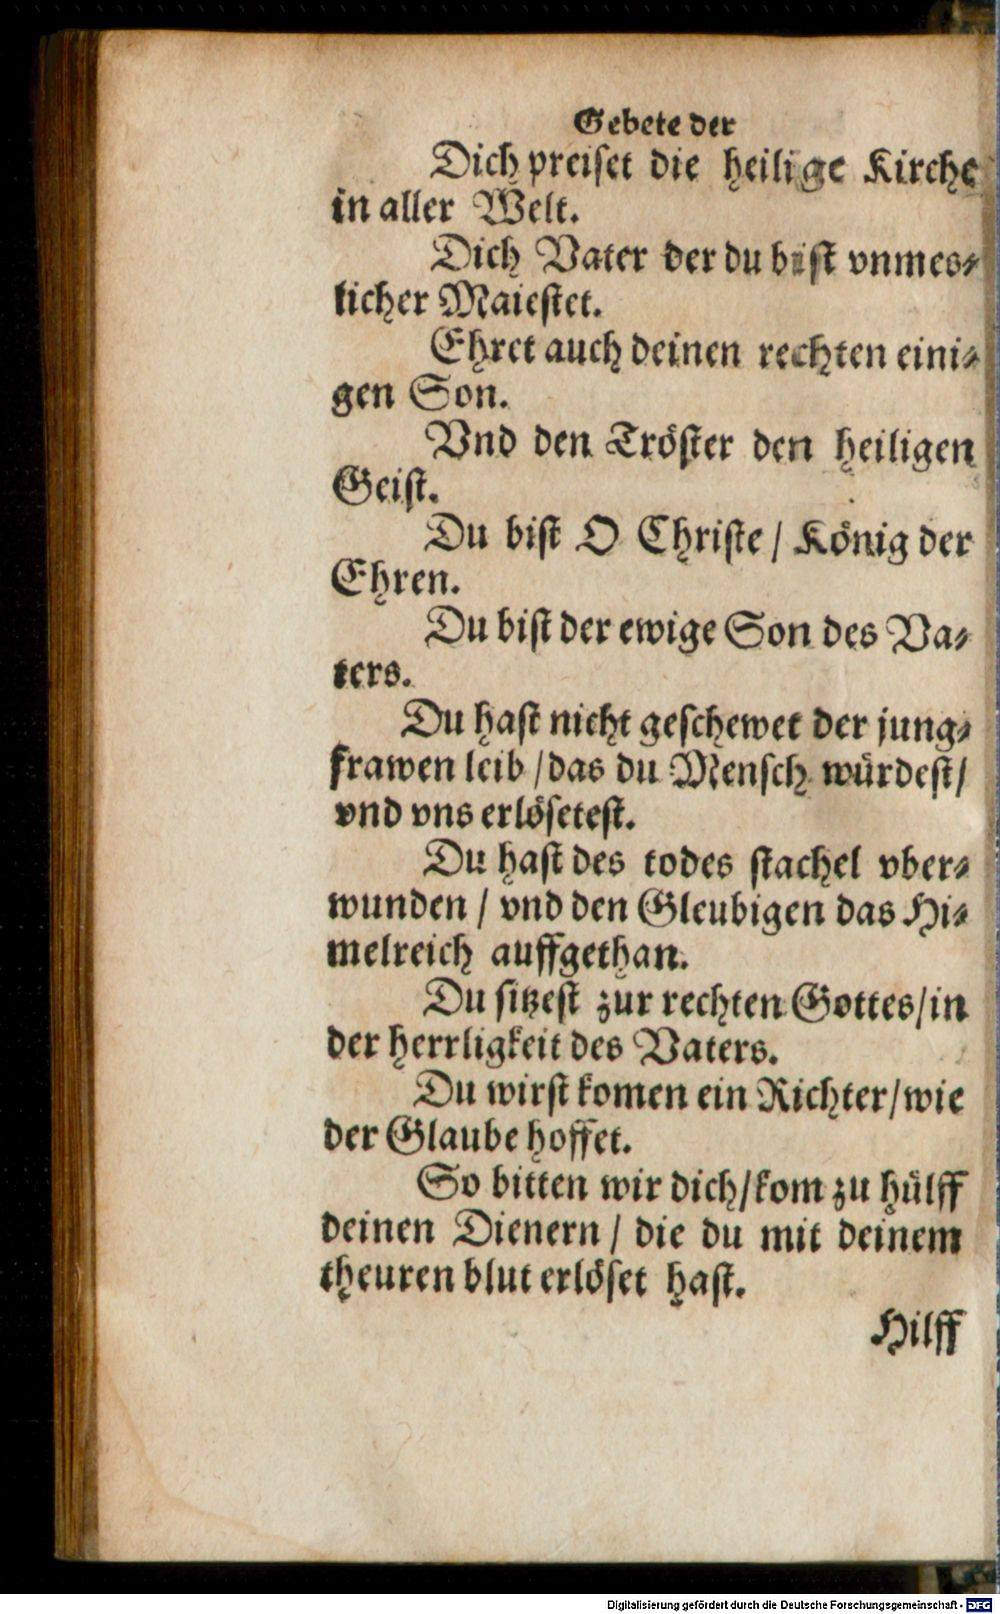 Gebete der
Dich preiset die heilige Kirche
in aller Welt.
Dich Vater der du bist vnmes⸗
licher Maiestet.
Ehret auch deinen rechten eini⸗
gen Son.
Vnd den Tröster den heiligen
Geist.
Du bist O Christe / König der
Ehren.
Du bist der ewige Son des Va⸗
ters.
Du hast nicht geschewet der jung⸗
frawen leib / das du Mensch würdest /
vnd vns erlösetest.
Du hast des todes stachel vber⸗
wunden / vnd den Gleubigen das Hi⸗
melreich auffgethan.
Du sitzest zur rechten Gottes / in
der herrligkeit des Vaters.
Du wirst komen ein Richter / wie
der Glaube hoffet.
So bitten wir dich / kom zu hülff
deinen Dienern / die du mit deinem
theuren blut erlöset hast.
Hilff
Digitalisierung gefördert durch die Deutsche Forschungsgemeinschaft - DFG